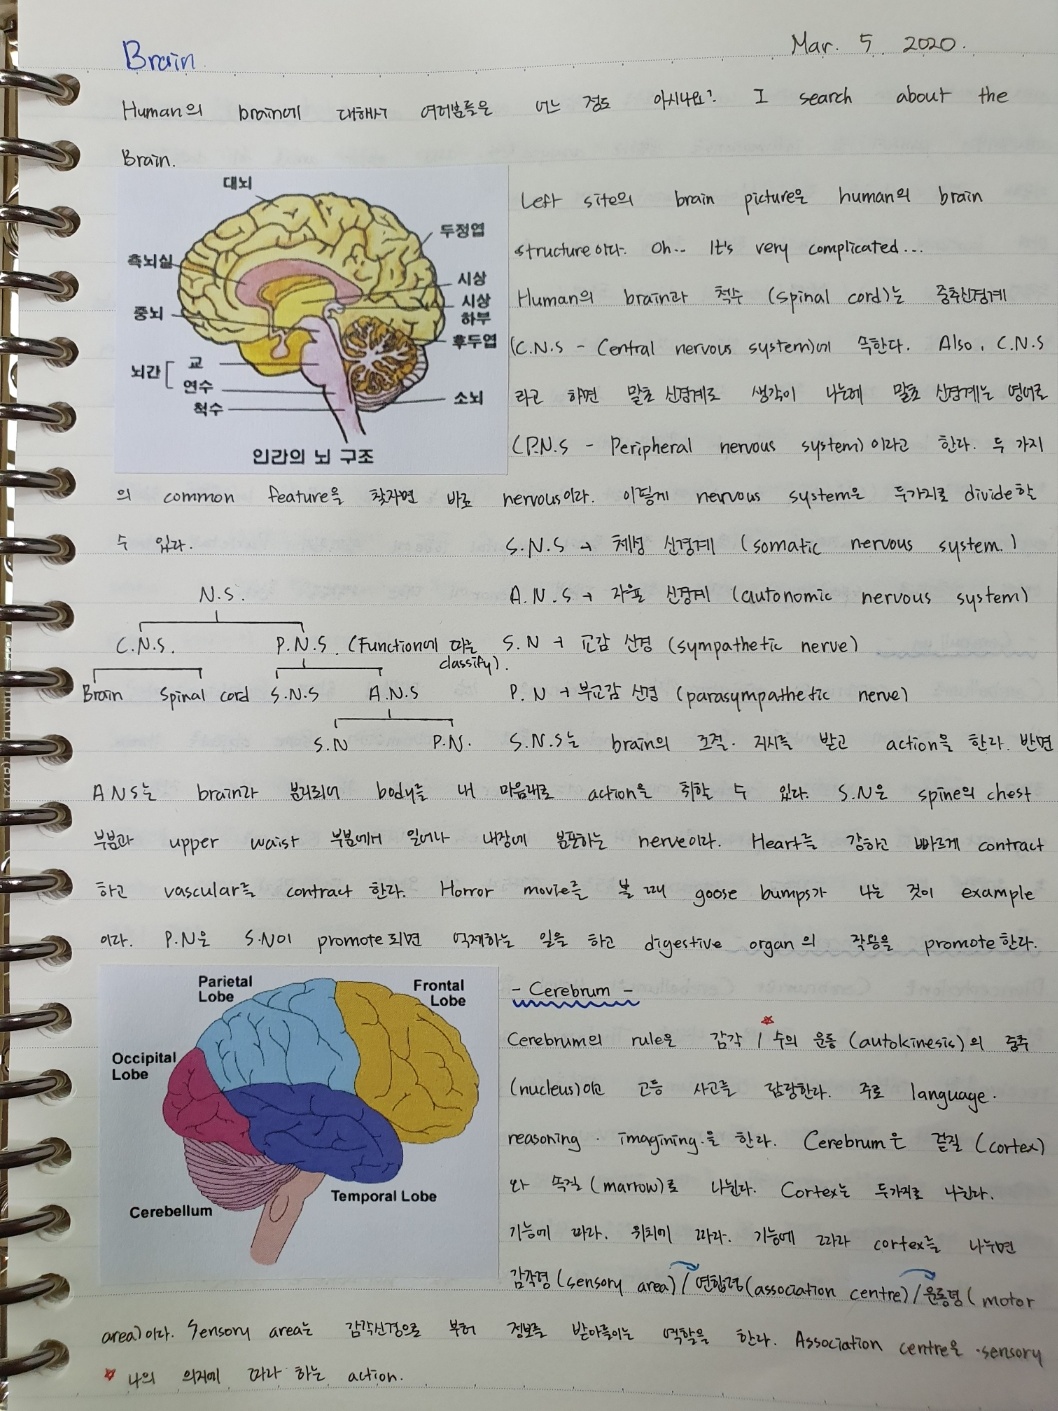 Brain
Mar. 5. 2020.
Human의 brain에 대해서 여러분들은 어느 정도 아시나요? I search about the
Brain.
대뇌
두정엽
측뇌실
시상
시상
하부
중뇌
후두엽
뇌간
교
연수
척수
소뇌
인간의 뇌 구조
Left site의 brain picture은 human의 brain
structure이다. Oh.. It's very complicated...
Human의 brain과 척수 (spinal cord)는 중추신경계
(C.N.S - Central nervous system)에 속한다. Also, C.N.S
라고 하면 말초 신경계도 생각이 나는데 말초 신경계는 영어로
(P.N.S - Peripheral nervous system) 이라고 한다. 두 가지
의 common feature을 찾자면 바로 nervous이다. 이렇게 nervous system은 두가지로 divide할
수 있다.
S.N.S → 체성 신경계 (somatic nervous system.)
N.S.
A.N.S → 자율 신경계 (autonomic nervous system)
C.N.S. P.N.S. (Function에 따른 classify).
S.N → 교감 신경 (sympathetic nerve)
Brain Spinal cord S.N.S A.N.S
P.N → 부교감 신경 (parasympathetic nerve)
S.N P.N.
S.N.S는 brain의 조절·지시를 받고 action을 한다. 반면
A.N.S는 brain과 분리되어 body를 내 마음대로 action을 취할 수 있다. S.N은 spine의 chest
부분과 upper waist 부분에서 일어나 내장에 분포하는 nerve이다. Heart를 강하고 빠르게 contract
하고 vascular를 contract 한다. Horror movie를 볼 때 goose bumps가 나는 것이 example
이다. P.N은 S.N이 promote되면 억제하는 일을 하고 digestive organ의 작용을 promote한다.
Parietal
Lobe
Frontal
Lobe
Occipital
Lobe
Temporal Lobe
Cerebellum
- Cerebrum -
Cerebrum의 rule은 감각 / 수의 운동 (autokinesis)의 중추
(nucleus)이고 고등 사고를 담당한다. 주로 language·
reasoning · imagining·을 한다. Cerebrum은 겉질 (cortex)
와 속질 (marrow)로 나뉜다. Cortex는 두가지로 나뉜다.
기능에 따라. 위치에 따라. 기능에 따라 cortex를 나누면
감각령 (sensory area) / 연합령 (association centre) / 운동령 (motor
area)이다. Sensory area는 감각신경으로 부터 정보를 받아들이는 역할을 한다. Association centre은 ·sensory
☆ 나의 의지에 따라 하는 action.